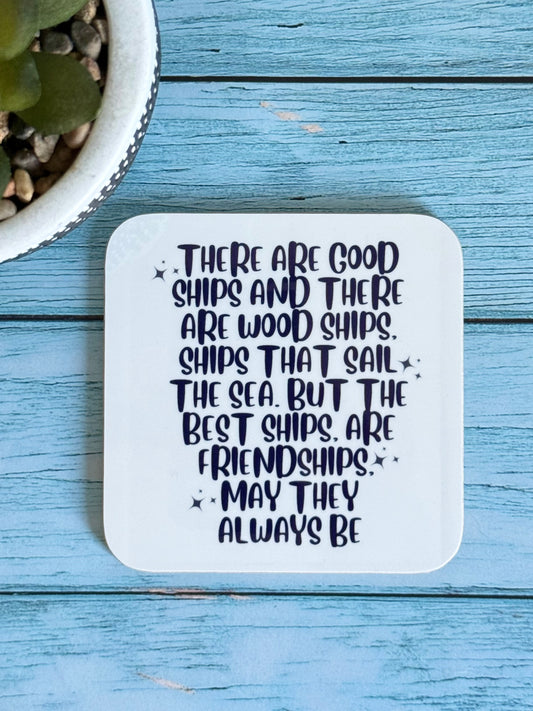 THERE ARE GOOD
SHIPS AND THERE
ARE WOOD SHIPS,
SHIPS THAT SAIL
THE SEA. BUT THE
BEST SHIPS, ARE
FRIENDSHIPS,
MAY THEY
ALWAYS BE